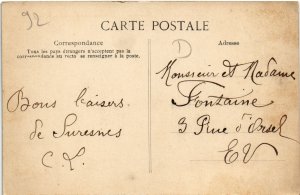 92
CARTE POSTALE
Correspondance
Tous les pays étrangers n'acceptent pas la
correspondance au recto se renseigner à la poste.
D
Adresse
Bons baisers
de Suresnes
Monsieur et Madame
Fontaine
3 Rue d'Orsel
EV